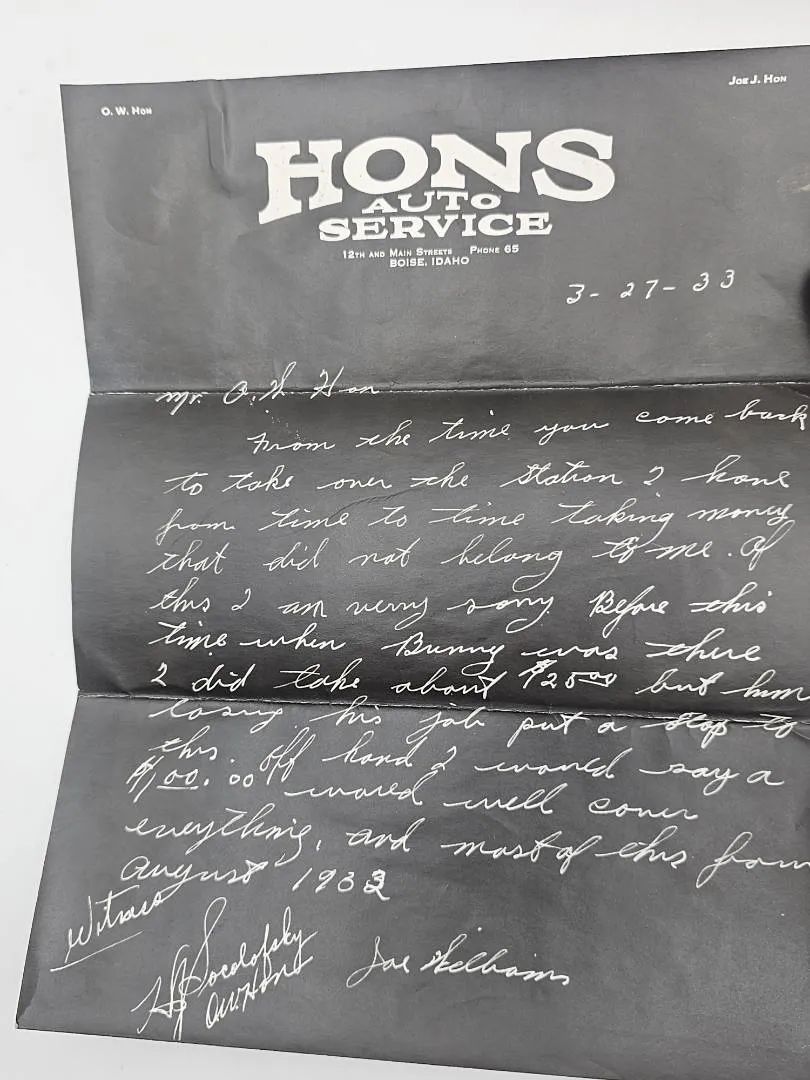 O. W. HON
JOE J. HON
HONS
AUTO
SERVICE
12TH AND MAIN STREETS PHONE 65
BOISE, IDAHO
3-27-33
Mr. O. W. Hon
From the time you come back
to take over the Station I have
from time to time taking money
that did not belong to me. Of
this I am verry sorry. Before this
time when Bunny was there
I did take about $25.00 but him
losing his job put a stop to
this. Off hand I would say a
$100.00 would well cover
everything, and most of this from
August 1932
Witness
Socolofsky
O.W. Hon
Joe Williams